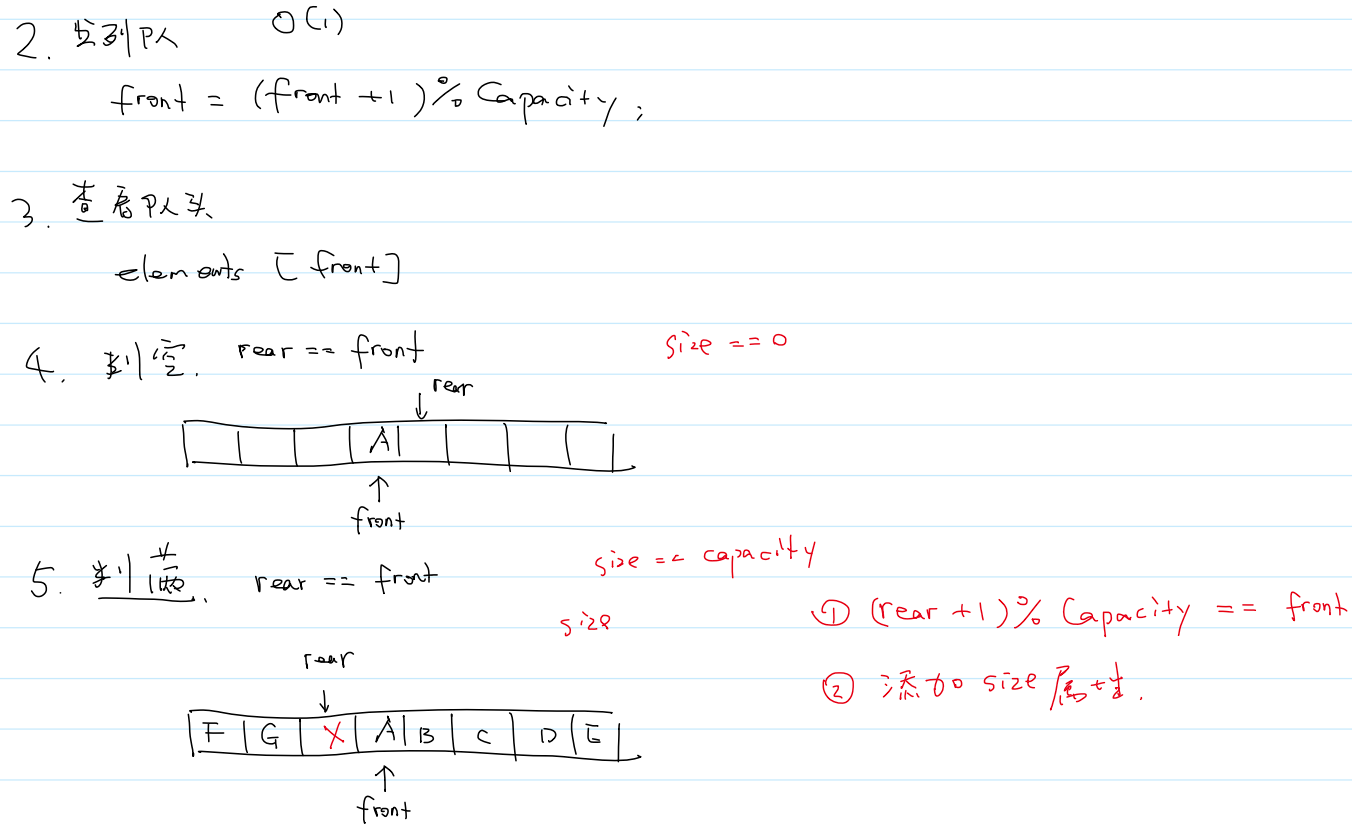 2. 出列队 O(1)
front = (front +1)% Capacity;
3. 查看队头
elements [front]
4. 判空. rear == front size == 0
rear
A
front
5. 判满. rear == front size == capacity
size ① (rear +1)% Capacity == front
② 添加 size 属性.
rear
F G X A B C D E
front